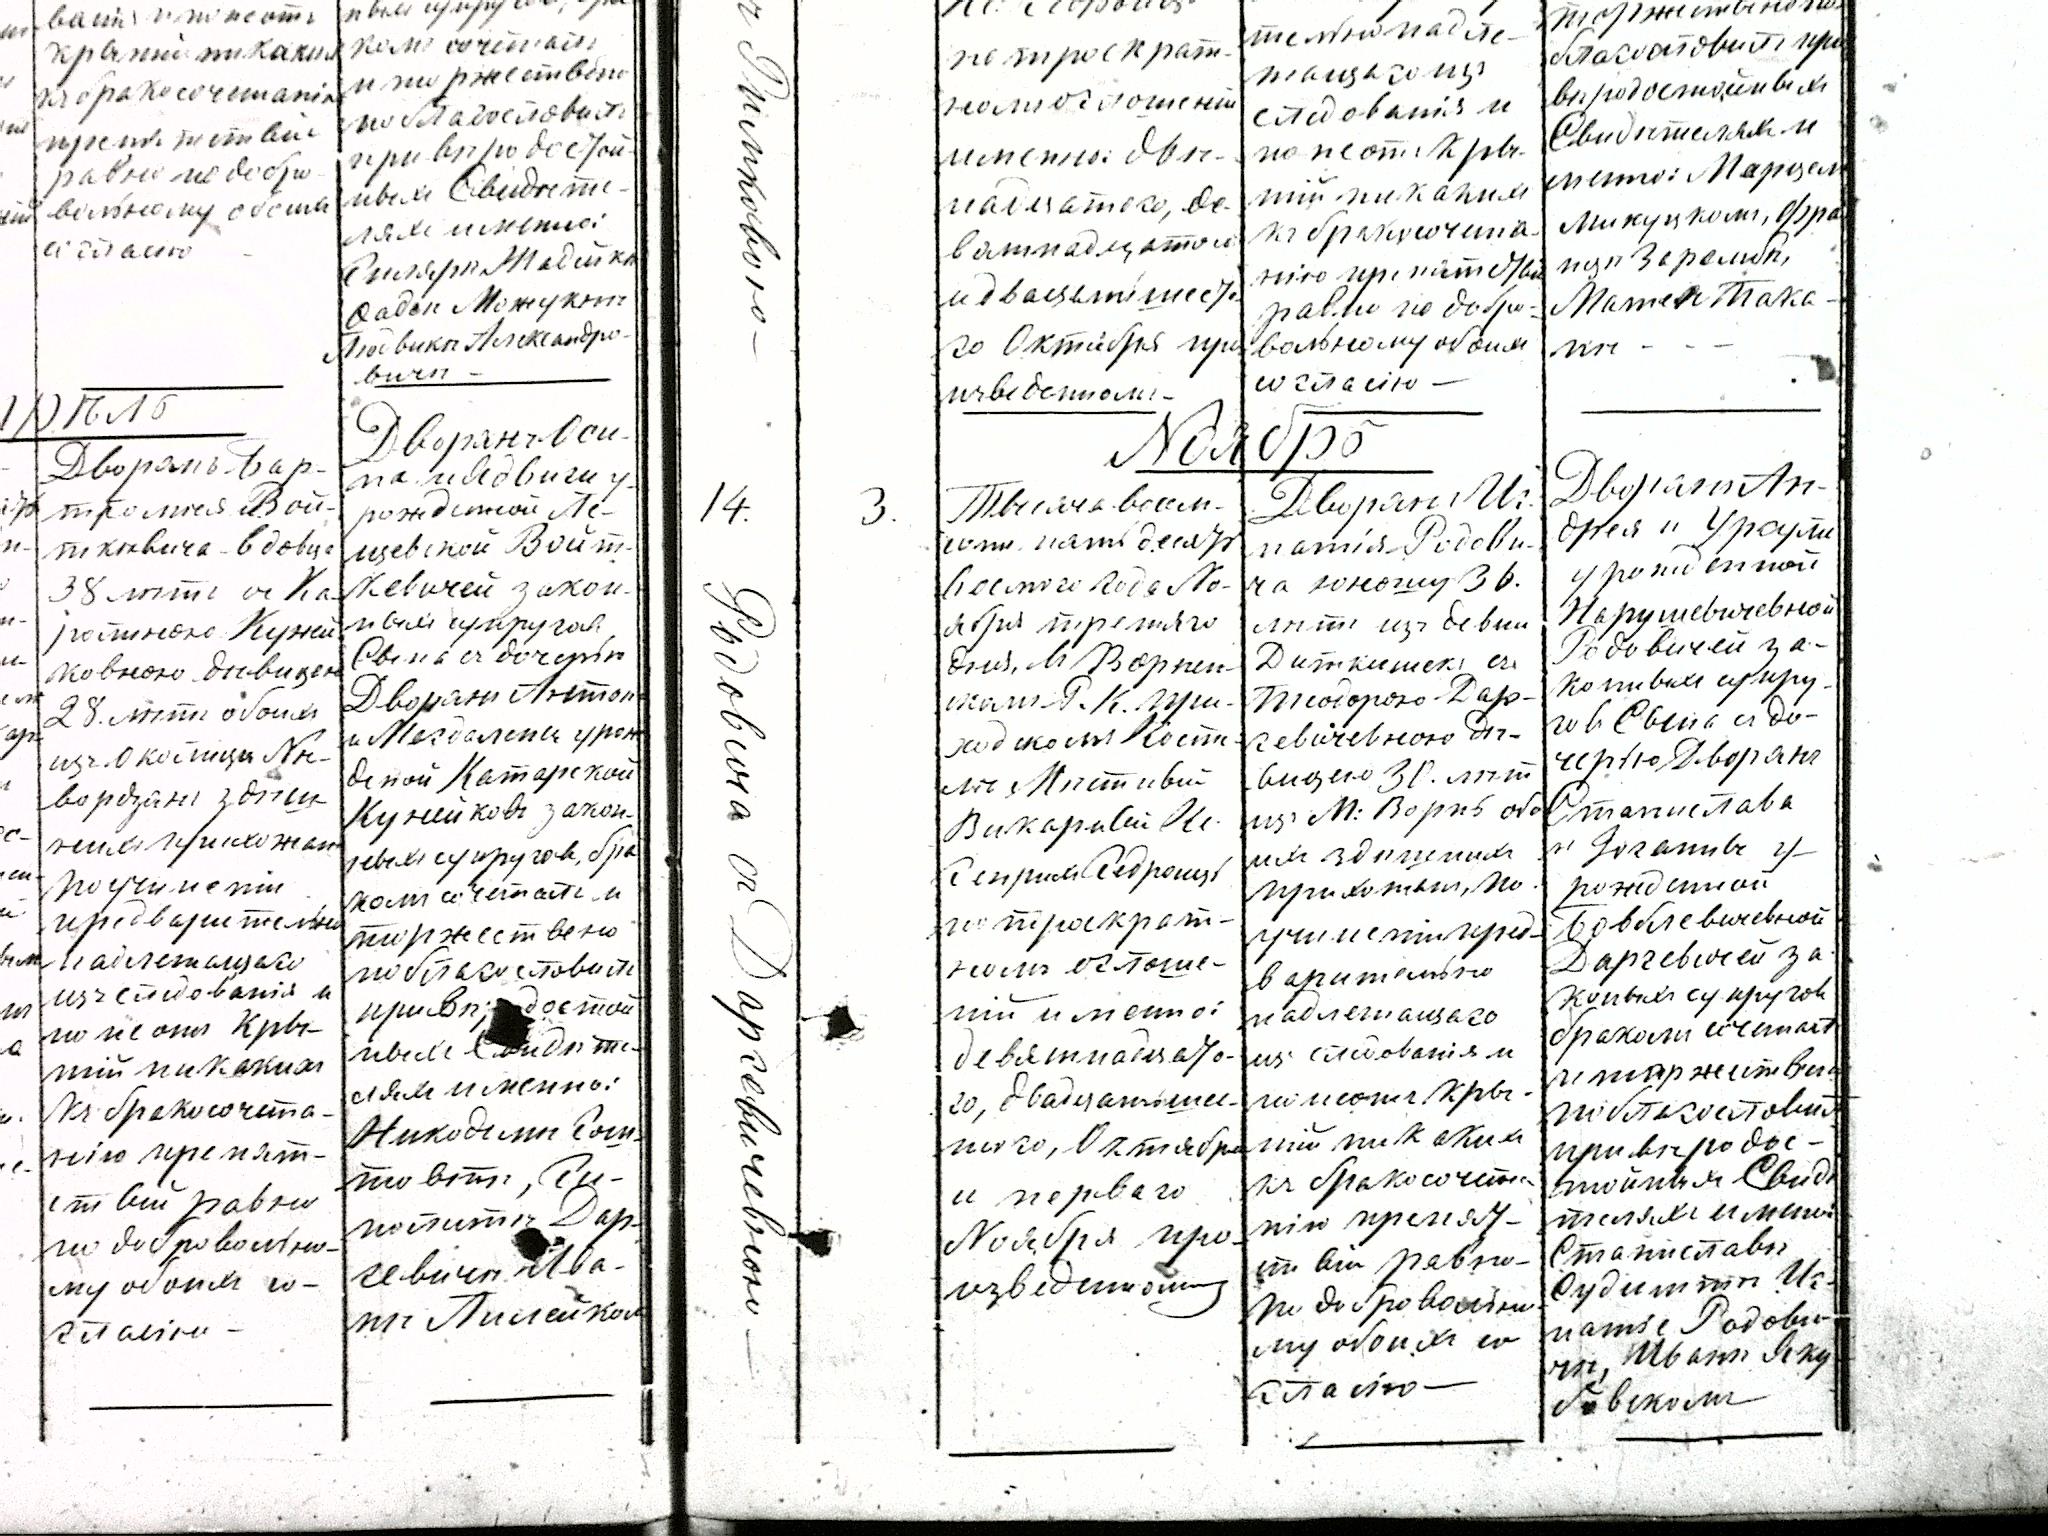 крытій никакихъ
къ бракосочетанію
препятствій
равно по добро-
вольному обоихъ
согласію
комъ сочеталъ
и торжественно
поблагословилъ
при вѣродостой-
ныхъ Свидѣте-
ляхъ именно:
Людвикѣ Александро-
вичѣ -
Дворянъ Бар-
тломея Вой-
ткевича вдовца
38 лѣтъ съ Ка-
ролиною Куней-
ковною дѣвицею
28. лѣтъ обоихъ
изъ Околицы
здѣш-
нихъ прихожанъ
по учиненіи
предварительно
надлежащаго
изслѣдованія и
по неоты Кры-
тій никакихъ
къ бракосочета-
нію препят-
ствій равно
по добровольно-
му обоихъ со-
гласію -
Дворянъ Оси-
па и Ядвиги у-
рожденной Ле-
щевской Войт-
кевичей закон-
ныхъ супруговъ
Сына съ дочерью
Дворянъ Антона
и Магдалены урож
деной Катарской
Кунейковъ закон-
ныхъ супруговъ, бра
комъ сочеталъ и
торжествено
поблагословилъ
при вѣродостой
ныхъ Свидѣте-
ляхъ именно:
Никодимѣ Гом-
Ги-
политѣ Дар-
гевичѣ Ива-
нѣ Пилейкомъ
по троекрат-
номъ оглошеніи
именно: двѣ-
надцатого, де-
вятнадцатого
и двадцать шесто
го Октября про
изведенномъ -
тельно надле-
жащаго из-
слѣдованія и
по неоты Кры-
тій никакихъ
къ бракосочета-
нію препятствій
равно по добро-
вольному обоихъ
согласію —
торжественно по
благословилъ при
вѣродостойныхъ
Свидѣтеляхъ и
менно: Марцелѣ
Микуцкомъ, Фра
нцѣ Зарембѣ,
Матеѣ Така-
нѣ - - -
Ноябрь
14.
Родовича съ Даргевичевною —
3.
Тысяча восем-
сотъ пятьдесятъ
восмого года Но-
ября третяго
дня, въ Ворнен-
скомъ Р. К. при-
ходскомъ Косте-
лѣ Мѣстный
Викарный Кс.
Генрихъ Гедройцъ
по троекрат-
номъ оглоше-
ніи именно:
девятнадцато-
го, двадцать шес-
того, Октября
и перваго
Ноября про-
изведенномъ
Дворянъ Иг-
натія Родови-
ча юношу 36.
лѣтъ изъ девни
Диткишекъ съ
Теодорою Дар-
гевичевною дѣ-
вицею 30. лѣтъ
изъ М: Ворнь обо
ихъ здѣшнихъ
прихожанъ, по
учиненіи пред-
варительно
надлежащаго
изслѣдованія и
по неоты Кры-
тій никакихъ
къ бракосочета-
нію препят-
ствій равно-
по добровольно-
му обоихъ со
гласію —
Дворянъ Ан-
дрея и Урсули
урожденной
Нарушевичевной
Родовичей за-
конныхъ супру-
говъ Сына съ до-
черью Дворянъ
Станислава
и Іоганны у-
рожденной
Даргевичей за-
конныхъ супруговъ
бракомъ сочеталъ
и торжественно
поблагословилъ
при вѣродос-
тойныхъ Свидѣ
теляхъ именно:
Станиславѣ
Иг-
натіе Родови-
чѣ, Иванѣ Яку-
бовскомъ —